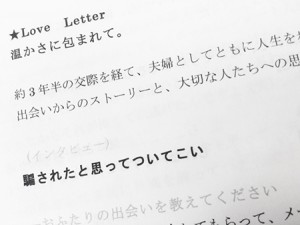 ★Love Letter
温かさに包まれて。
約３年半の交際を経て、夫婦としてともに人生を
出会いからのストーリーと、大切な人たちへの思
(インタビュー)
騙されたと思ってついてこい
おふたりの出会いを教えてください
してもらって、メー